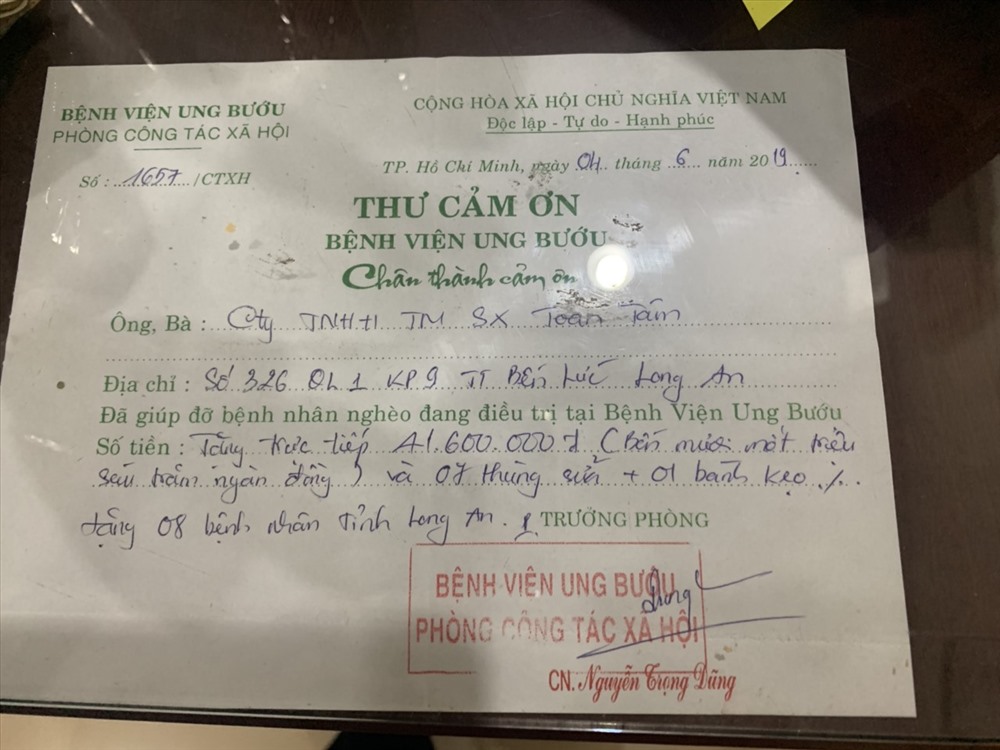 BỆNH VIỆN UNG BƯỚU
PHÒNG CÔNG TÁC XÃ HỘI
Số : 1657 /CTXH
CỘNG HÒA XÃ HỘI CHỦ NGHĨA VIỆT NAM
Độc lập - Tự do - Hạnh phúc
TP. Hồ Chí Minh, ngày 04 tháng 6 năm 2019
THƯ CẢM ƠN
BỆNH VIỆN UNG BƯỚU
Chân thành cảm ơn
Ông, Bà : Cty TNHH TM SX Toàn Tâm
Địa chỉ : Số 326 QL1 KP9 TT Bến Lức Long An
Đã giúp đỡ bệnh nhân nghèo đang điều trị tại Bệnh Viện Ung Bướu
Số tiền : Tặng trực tiếp 41.600.000đ (Bốn mươi một triệu
sáu trăm ngàn đồng) và 07 thùng sữa + 01 bánh kẹo %.
tặng 08 bệnh nhân tỉnh Long An.
TRƯỞNG PHÒNG
BỆNH VIỆN UNG BƯỚU
PHÒNG CÔNG TÁC XÃ HỘI
CN. Nguyễn Trọng Dũng